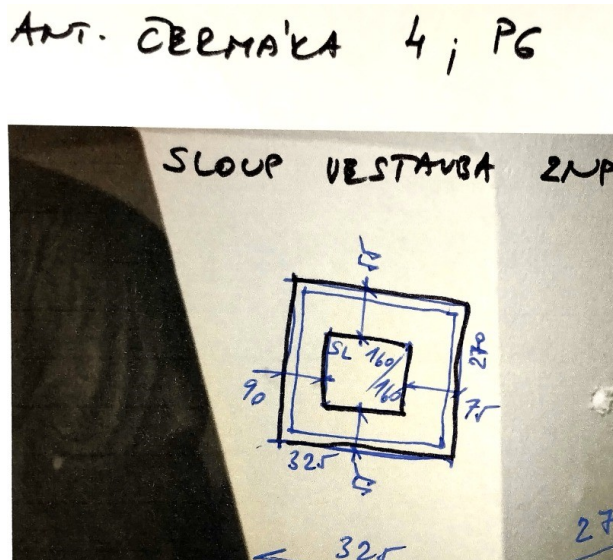 ANT. ČERMÁKA 4; P6
SLOUP VESTAVBA 2NP
55
SL 160/160
270
90
75
325
55
325
27